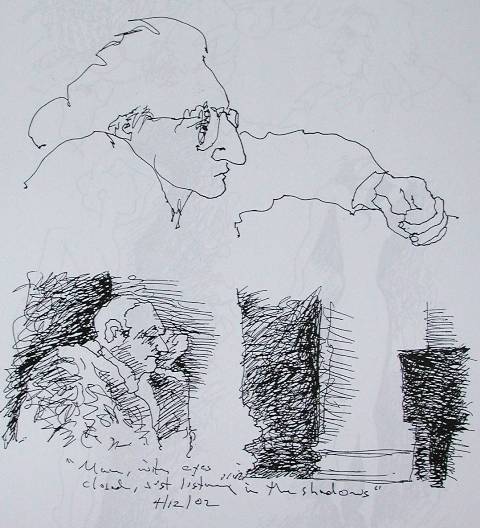 "Man, with eyes
closed, just listening in the shadows"
4/12/02